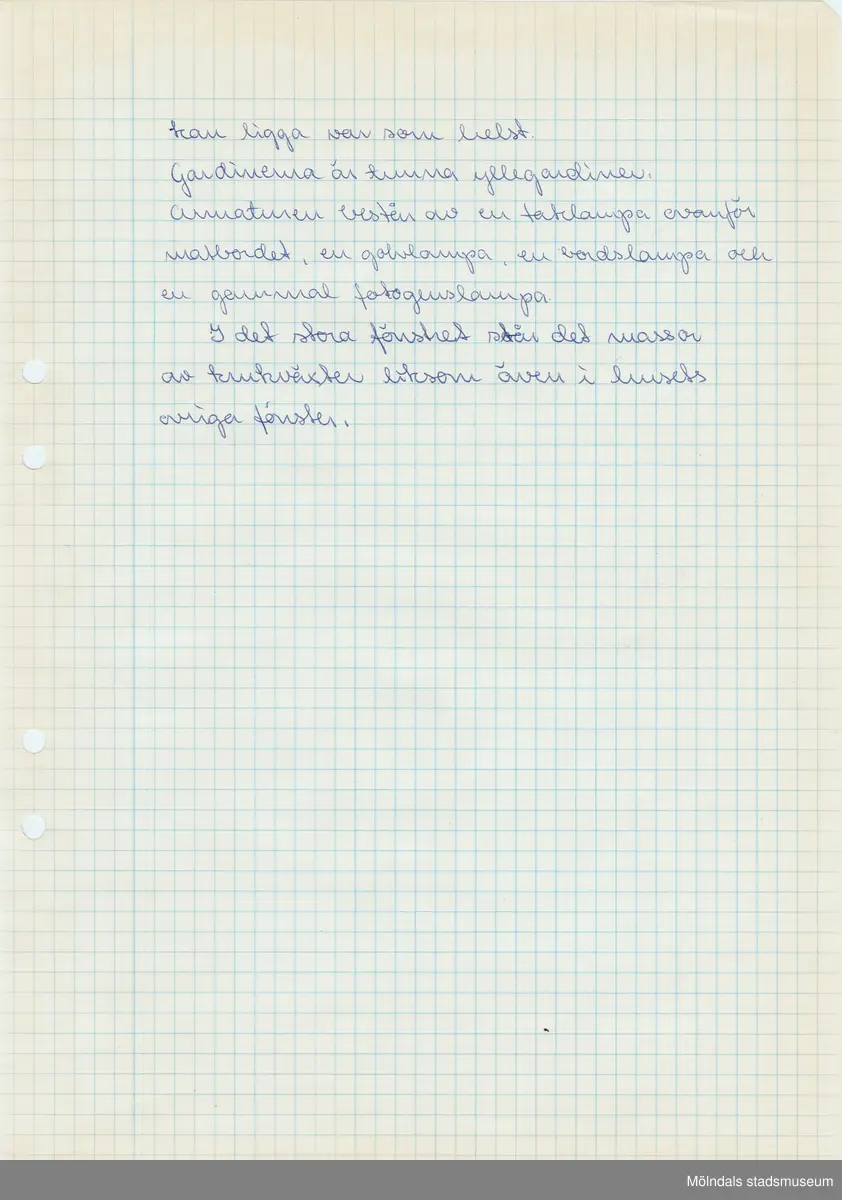 kan ligga var som helst.
Gardinerna är tunna yllegardiner.
Armaturen består av en taklampa ovanför
matbordet, en golvlampa, en bordslampa och
en gammal fotogenslampa.
I det stora fönstret står det massor
av krukväxter liksom även i husets
övriga fönster.
Mölndals stadsmuseum